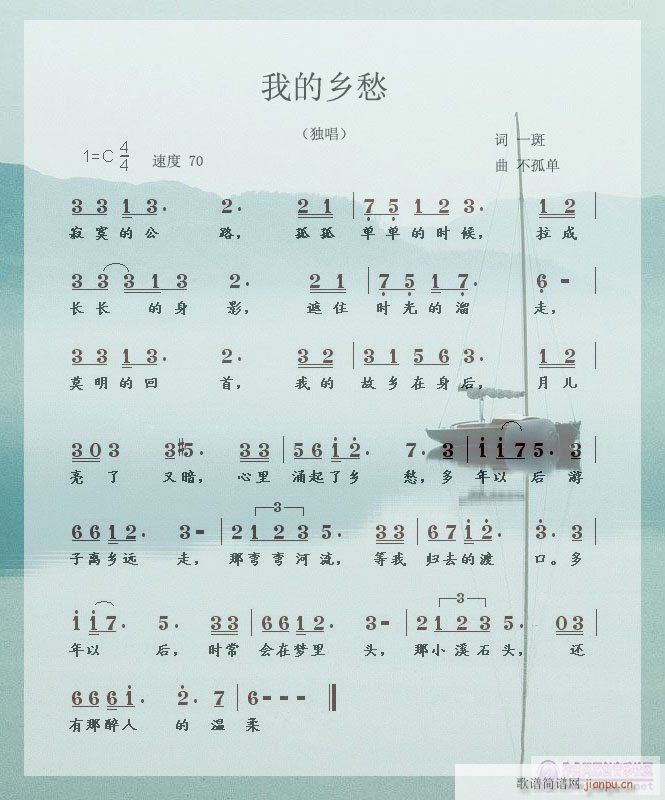 我的乡愁
（独唱）
1=C 4/4 速度 70
词 一斑
曲 不孤单
3 3 1 3. 2. 2 1 | 7 5 1 2 3. 1 2 |
寂寞的公 路， 孤孤 单单的时候， 拉成
3 3 3 1 3 2. 2 1 | 7 5 1 7. 6 - |
长长 的身 影， 遮住 时光的溜 走，
3 3 1 3. 2. 3 2 | 3 1 5 6 3. 1 2 |
莫明的回 首， 我的 故乡在身后， 月儿
3 0 3 3 #5. 3 3 | 5 6 1 2. 7. 3 | 1 1 7 5. 3
亮了 又暗， 心里 涌起了乡 愁，多 年以 后 游
3
6 6 1 2. 3 - | 2 1 2 3 5. 3 3 | 6 7 1 2. 3. 3
子离乡远 走， 那弯弯河流， 等我 归去的渡 口。多
3
1 1 7. 5. 3 3 | 6 6 1 2. 3 - | 2 1 2 3 5. 0 3 |
年以 后， 时常 会在梦里 头， 那小溪石头， 还
6 6 6 1. 2. 7 | 6 - - -
有那醉人 的 温 柔
歌谱简谱网 jianpu.cn